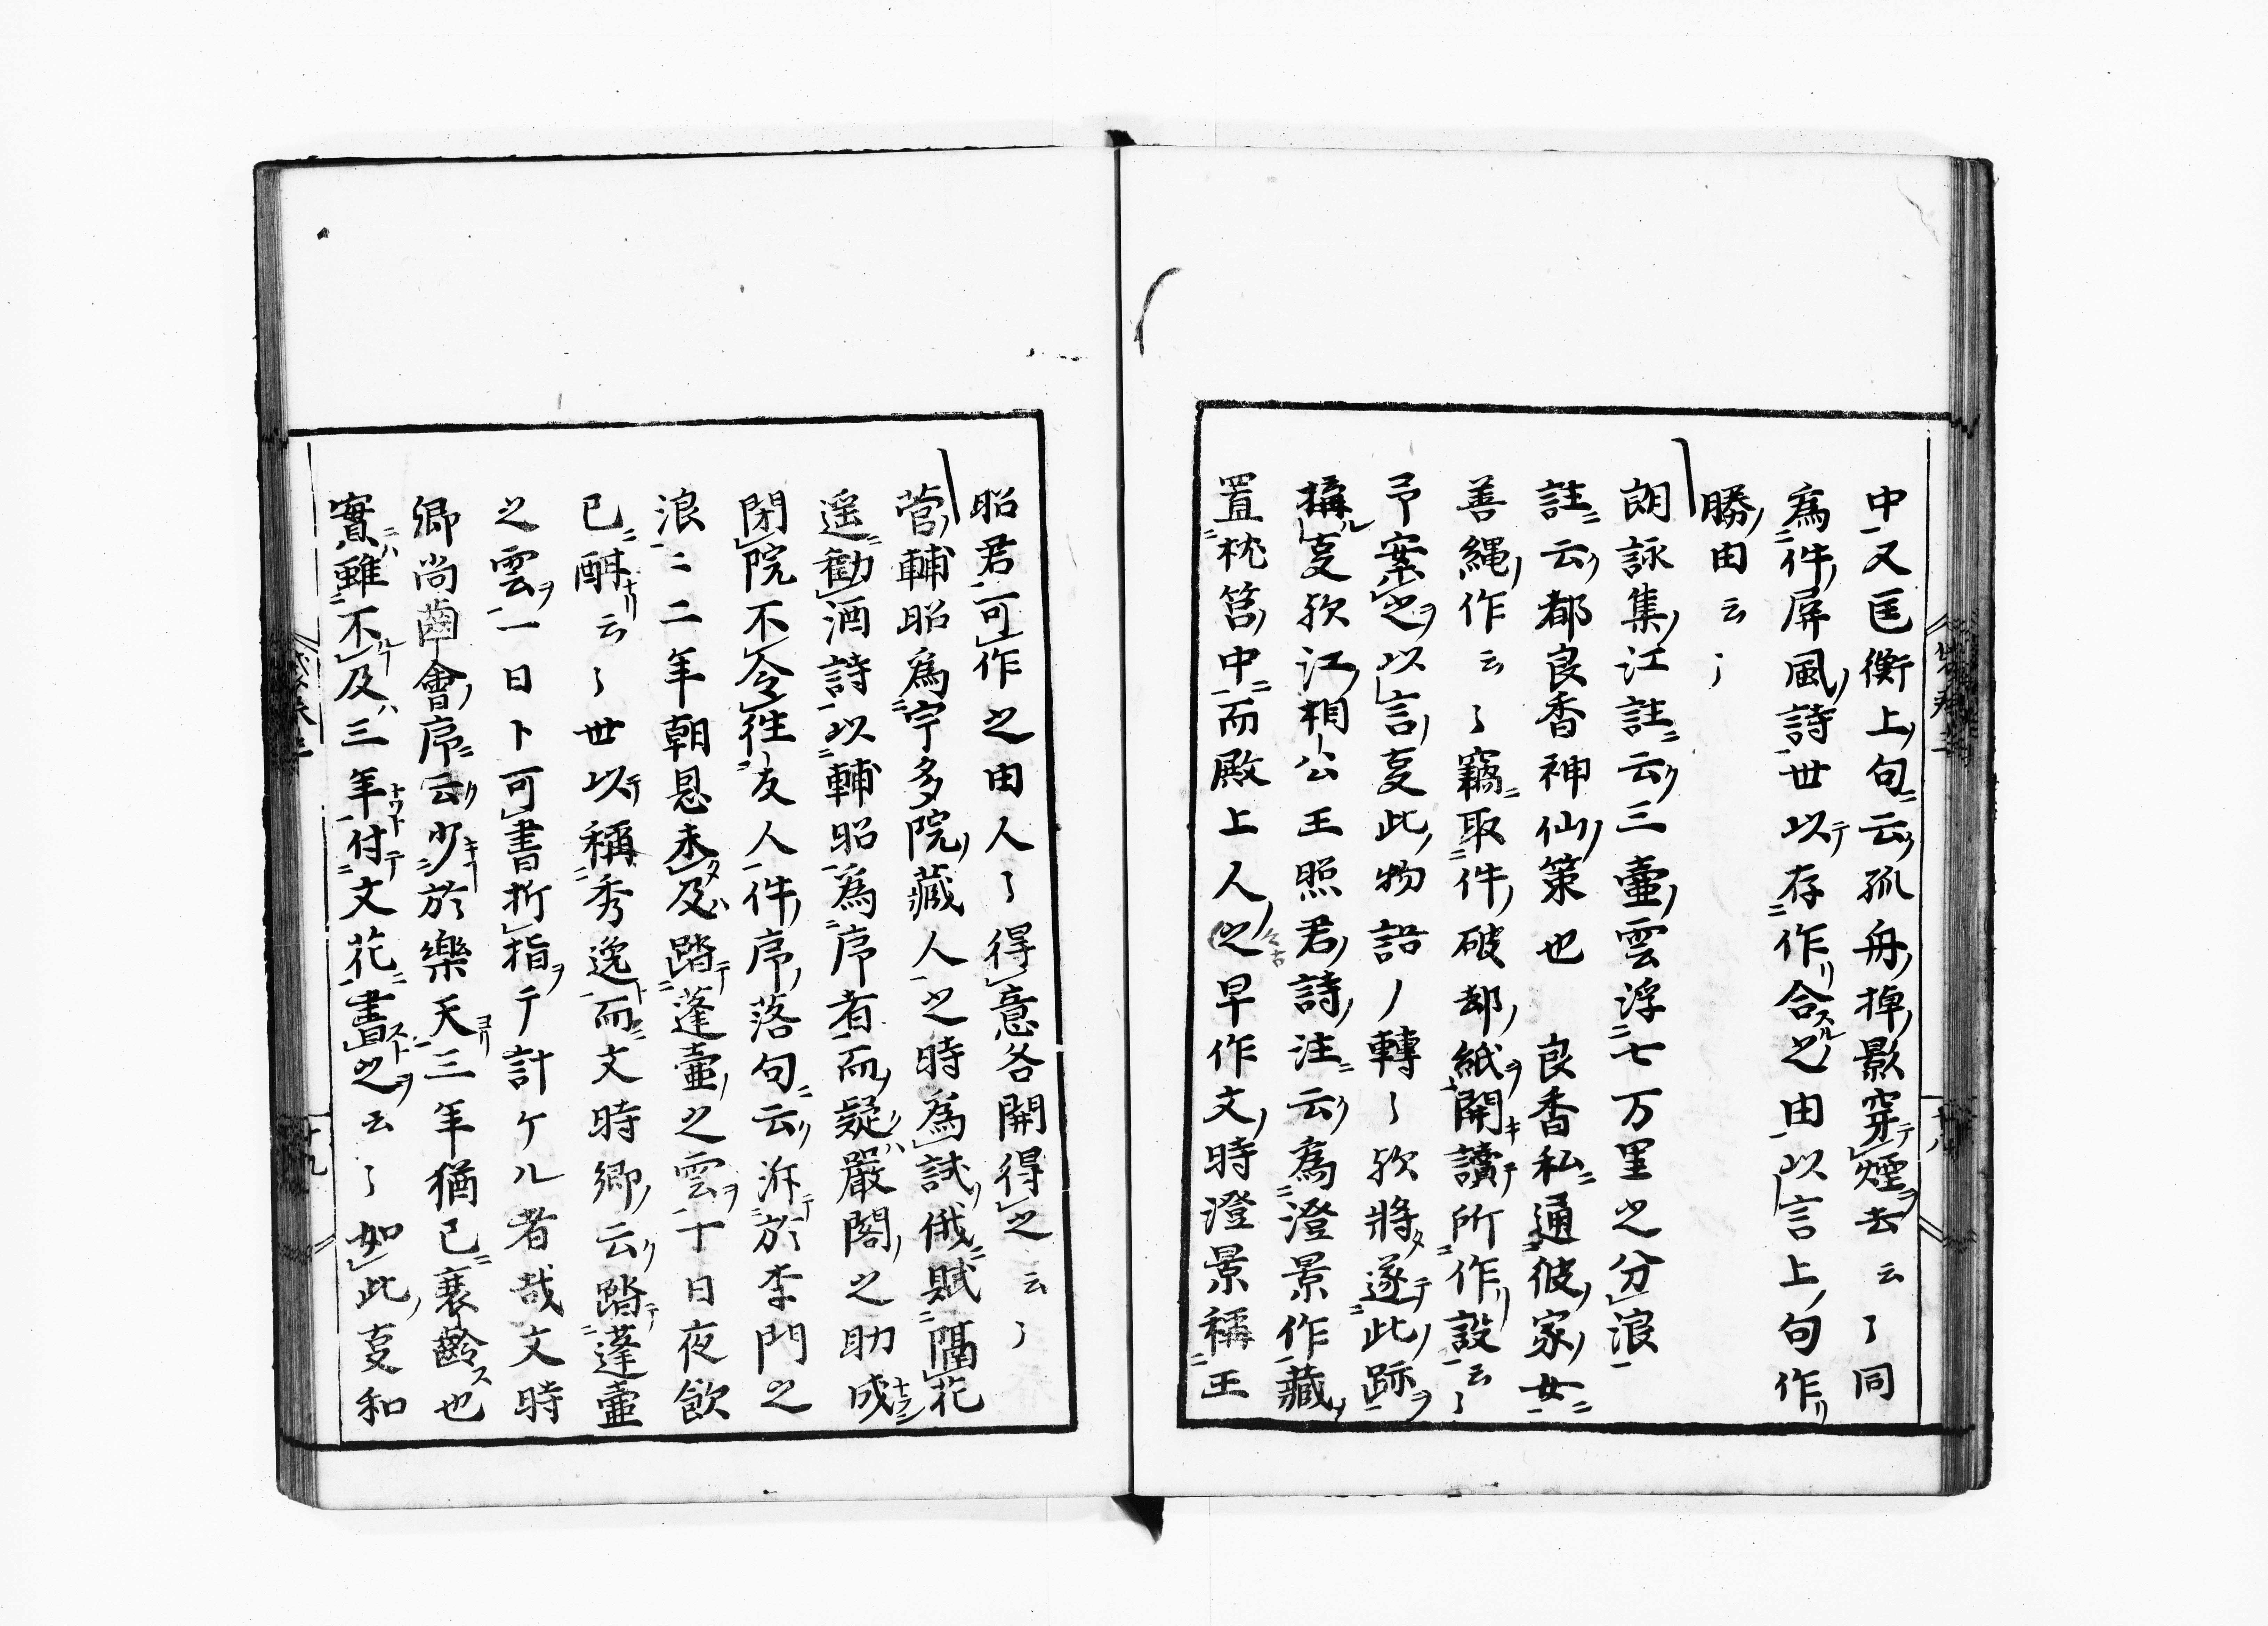 中又匡衡上句云孤舟掉影穿煙去云々同
為件屏風詩世以存作合之由以言上句作
勝由云々
朗詠集江註云三壷雲浮七万里之分浪
註云都良香神仙策也 良香私通彼家女
善縄作云々竊取件破却紙開讀所作設云々
予案之以言叓此物語ノ轉々欤將遂此跡
搆叓欤江相公王照君詩注云為澄景作藏
置枕筥中而殿上人之早作文時澄景稱王
昭君可作之由人々得意各開得之云々
菅輔昭為宇多院藏人之時為試俄賦隔花
遥勧酒詩以輔昭為序者而疑嚴閤之助成
閉院不令徃友人件序落句云泝於李門之
浪二二年朝恩未及踏蓬壷之雲十日夜飲
已酣云々世以稱秀逸而文時卿云踏蓬壷
之雲一日ト可書折指テ計ケル者哉文時
卿尚齒會序云少於樂天三年猶已衰齡也
實雖不及三年付文花書之云々如此叓和
十九